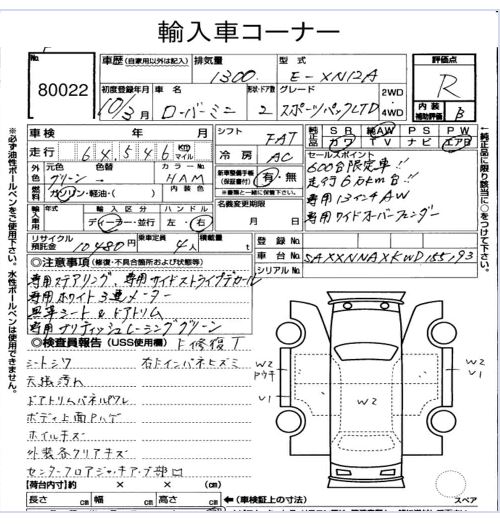 輸入車コーナー
No. 80022
車歴 (自家用以外は記入)
排気量 1300
型式 E-XN12A
評価点 R
初度登録年月 10/3月
車名 ローバーミニ
形状・ドア数 2
グレード スポーツパックLTD
2WD・4WD
内装補助評価 B
車検 年 月
シフト FAT
純正品 SR 純AW PS PW カワ TV ナビ エアB
走行 64,546 km マイル
冷房 AC
セールスポイント
600台限定車!!
走行6万km台!!
専用13インチAW
専用ワイドオーバーフェンダー
外色 元色 グリーン → 色替
カラーNo. HAM
新車整備手帳(保証書付) 有・無
※書類と一緒に保管下さい。
燃料 ガソリン・軽油・( )
内装色
名義変更期限 月 日
輸入車用 年式
輸入区分 ディーラー・並行
ハンドル 左・右
リサイクル預託金 10480円
乗車定員 4人
積載量 t
登録No.
車台No. SAXXNNAXKWD155193
シリアルNo.
◎注意事項 (修復・不具合箇所および状態等)
専用ステアリング、専用サイドストライプデカール
専用ホワイト3連メーター
黒革シート&ドアトリム
専用ブリティッシュレーシンググリーン
◎検査員報告 (USS使用欄)
シートシワ 右ドインパネヒズミ
天張汚れ
ドアトリムパネルワレ
ボディ上面Pハゲ
ホイルキズ
外装各クリアキズ
W2
V1
W2
W2
V1
【荷台内寸】約 × × (cm)
長さ cm 幅 cm 高さ cm
←(車検証上の寸法)
スペア
※必ず油性ボールペンをご使用下さい。水性ボールペンは使用できません。
←純正品に限り該当に○をつけて下さい。